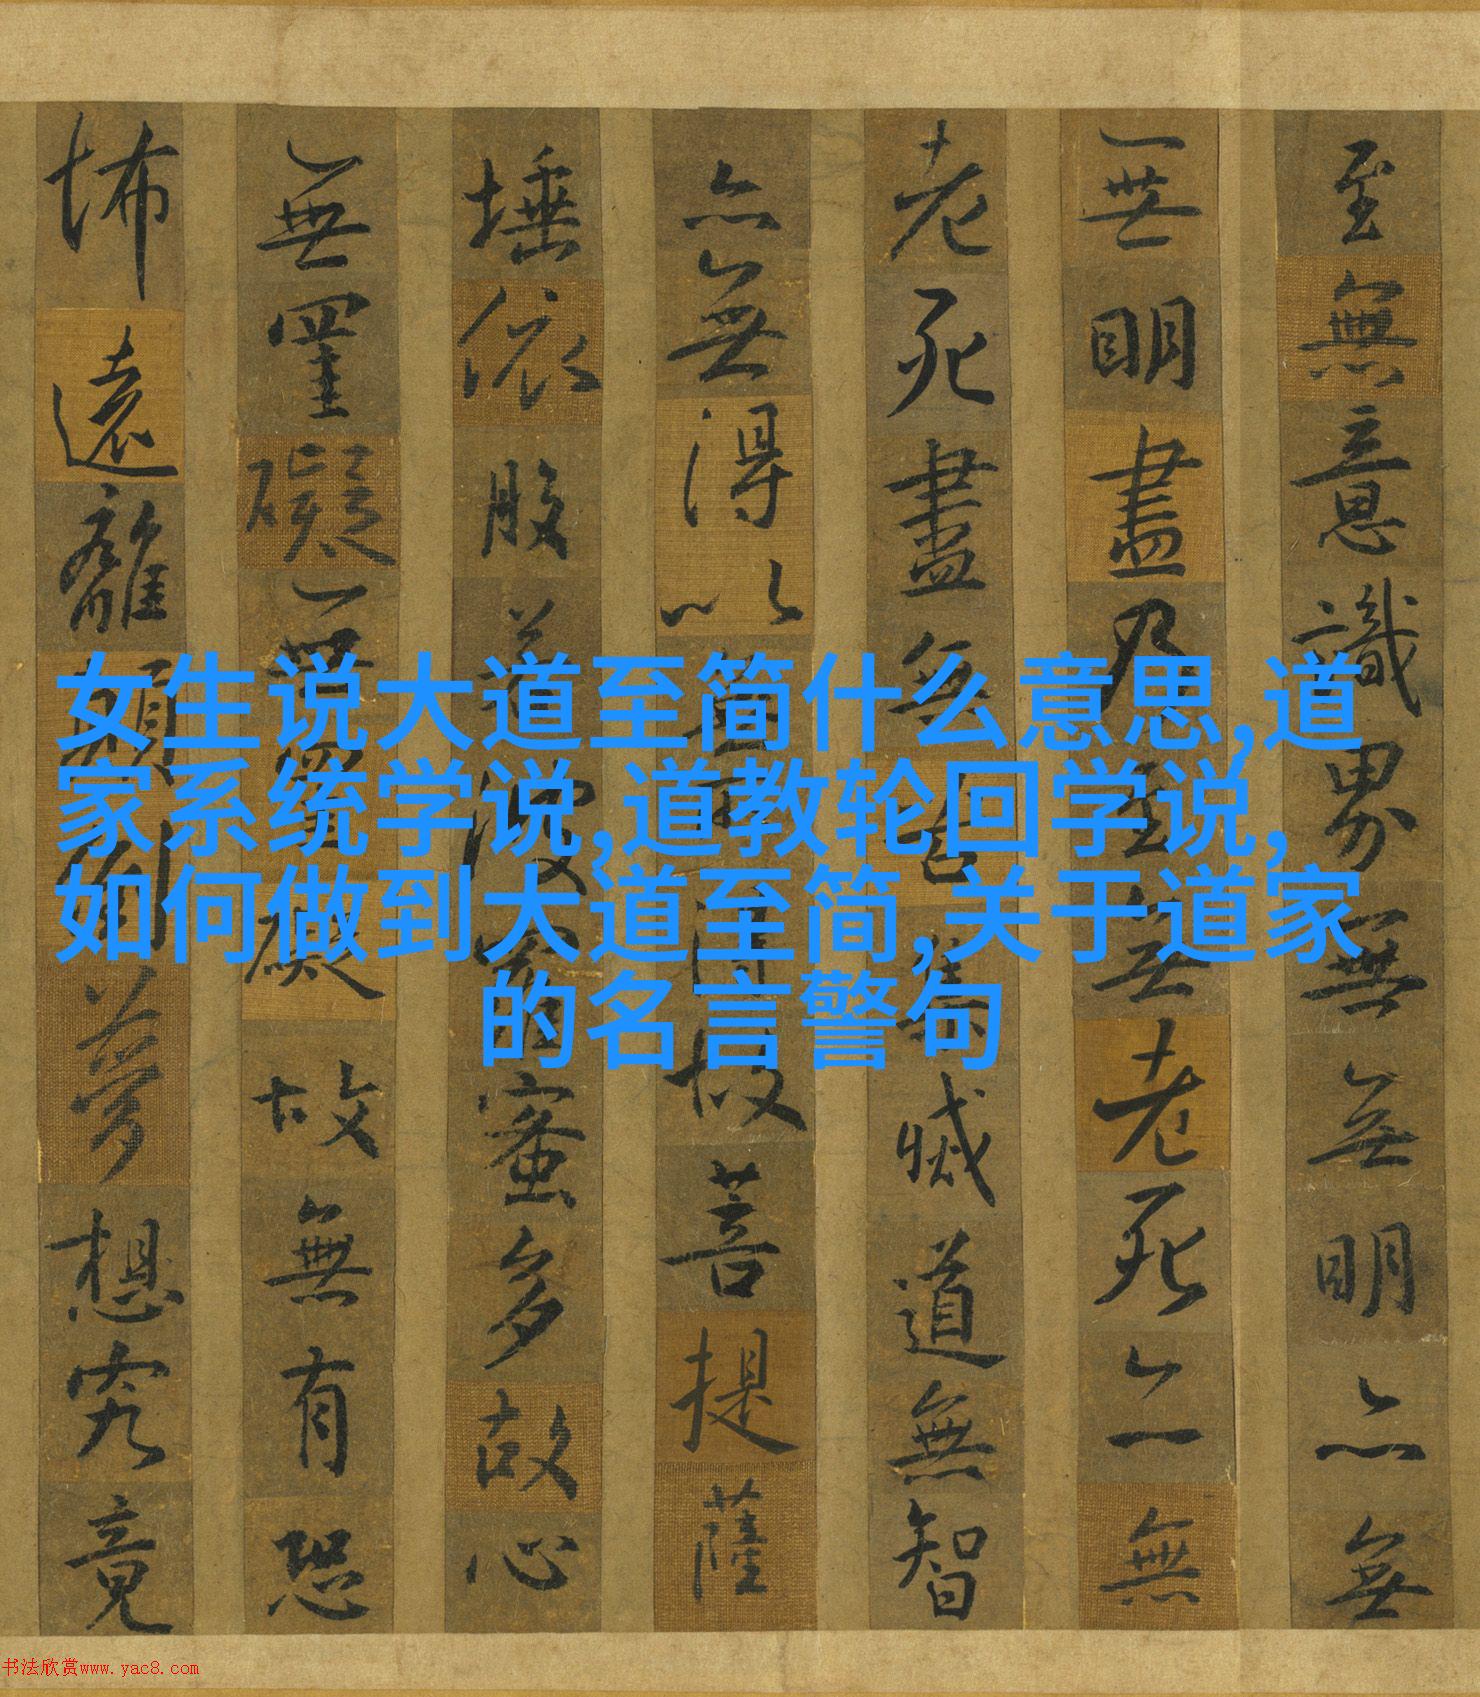 至無意識界無無明亦無
無明盡乃至無老死亦無
老死盡無苦集滅道無智
亦無得以無所得故菩提薩
埵依般若波羅蜜多故心
無罣礙無罣礙故無有恐
怖遠離顛倒夢想究竟
女生说大道至简什么意思,道
家系统学说,道教轮回学说,
如何做到大道至简,关于道家
的名言警句
书法欣赏www.yac8.com